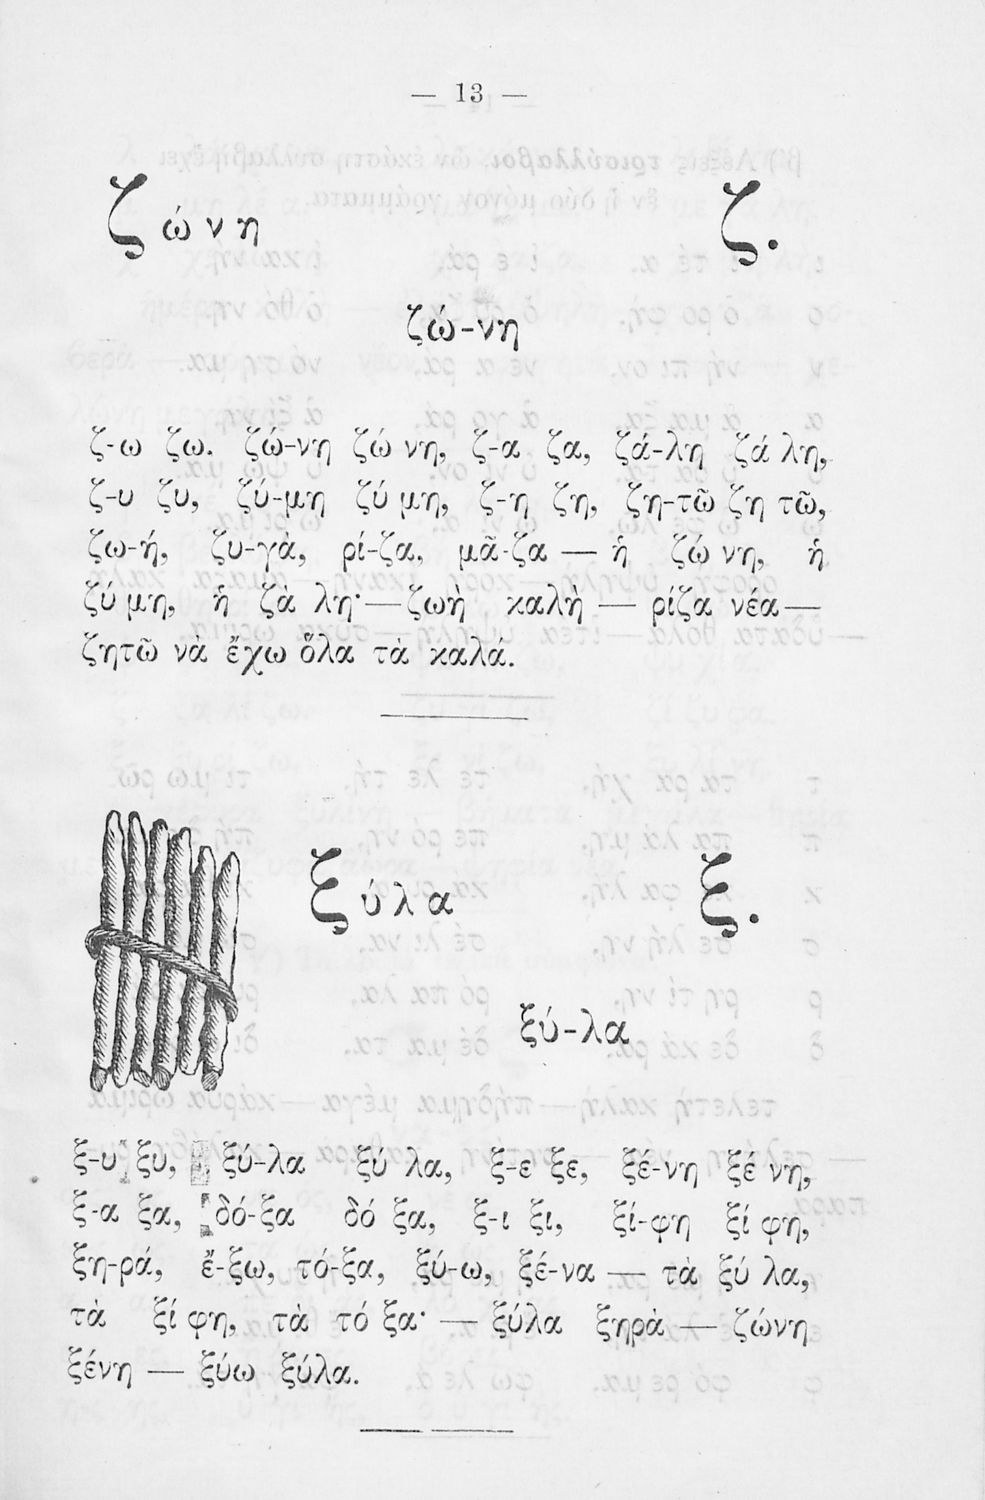 — 13 —
ζώνη ζ.
ζώ-νη
ζ-ω ζω. ζώ-νη ζώ νη, ζ-α ζα, ζά-λη ζά λη,
ζ-υ ζυ, ζύ-μη ζύ μη, ζ-η ζη, ζη-τῶ ζη τῶ,
ζω-ή, ζυ-γὰ, ρί-ζα, μᾶ-ζα — ἡ ζώ νη, ἡ
ζύ μη, ἡ ζὰ λη·—ζωὴ καλὴ — ρίζα νέα—
ζητῶ νὰ ἔχω ὅλα τὰ καλά.
ξύλα ξ.
ξύ-λα
ξ-υ ξυ, ξύ-λα ξύ λα, ξ-ε ξε, ξέ-νη ξέ νη,
ξ-α ξα, δό-ξα δό ξα, ξ-ι ξι, ξί-φη ξί φη,
ξη-ρά, ἔ-ξω, τό-ξα, ξύ-ω, ξέ-να — τὰ ξύ λα,
τὰ ξί φη, τὰ τό ξα· — ξύλα ξηρὰ — ζώνη
ξένη — ξύω ξύλα.